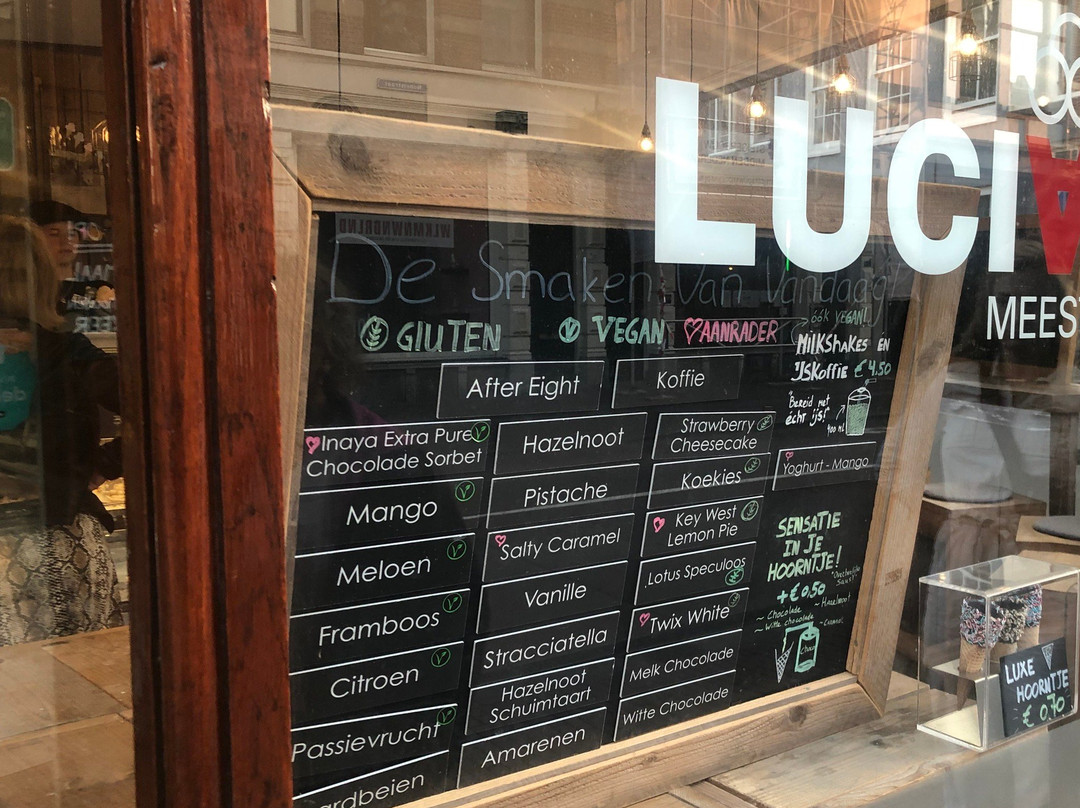 LUCI
MEES
De Smaken Van Vandaag!
GLUTEN
VEGAN
AANRADER
óók VEGAN!
MILKSHAKES ÉN
IJSKoffie €4.50
"Bereid met
écht ijs!"
400 ml
After Eight
Koffie
Inaya Extra Pure
Chocolade Sorbet
Mango
Meloen
Framboos
Citroen
Passievrucht
ardbeien
Hazelnoot
Pistache
Salty Caramel
Vanille
Stracciatella
Hazelnoot
Schuimtaart
Amarenen
Strawberry
Cheesecake
Koekies
Key West
Lemon Pie
Lotus Speculoos
Twix White
Melk Chocolade
Witte Chocolade
Yoghurt - Mango
SENSATIE
IN JE
HOORNTJE!
+ €0,50
~ Chocolade
~ Witte chocolade
~ Hazelnoot
~ Caramel
LUXE
HOORNTJE
€ 0,70